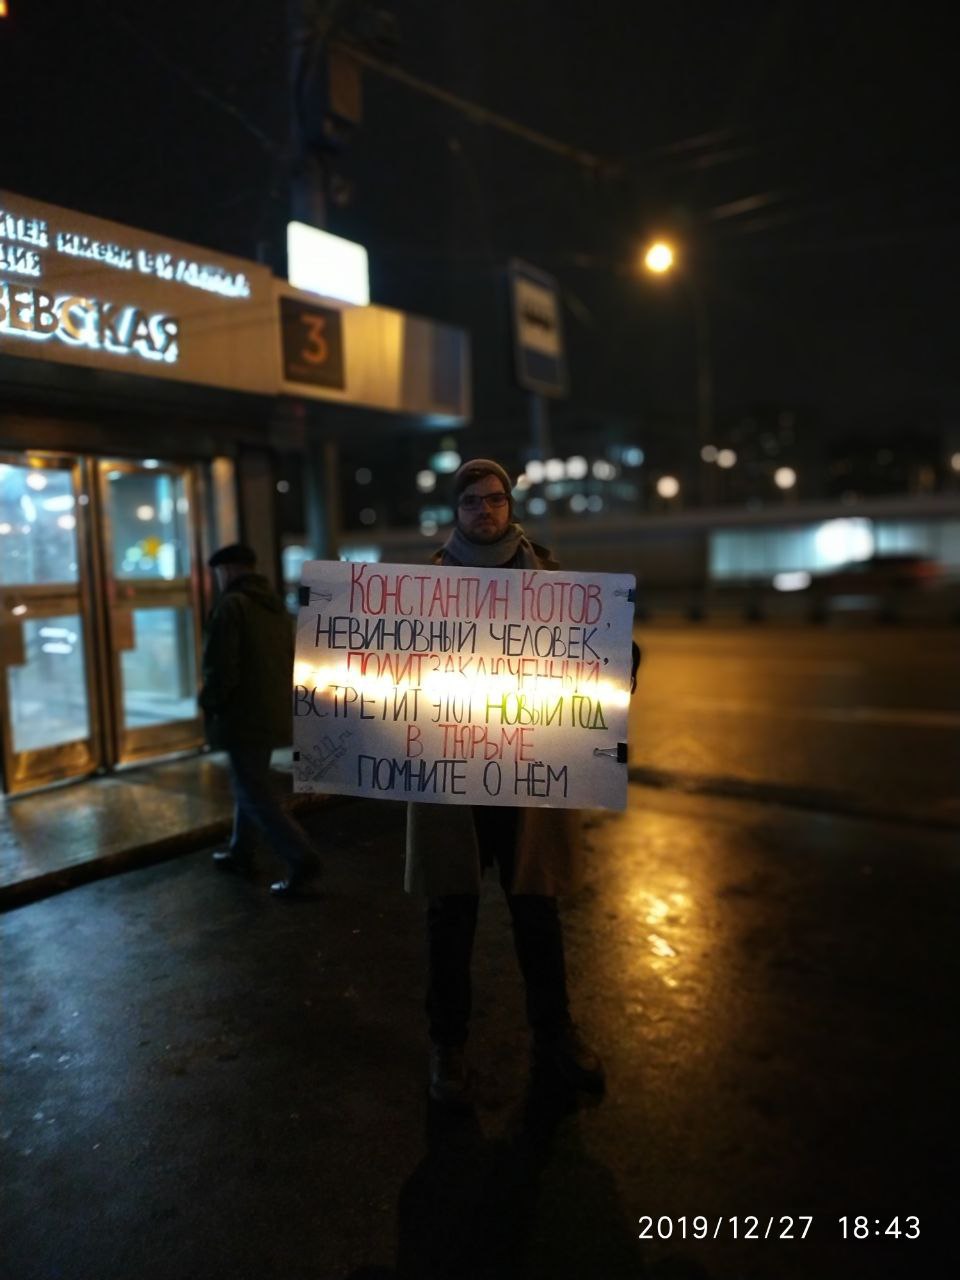 ИТЕН имени В.И.Ленина
ЦИЯ
ЕВСКАЯ
3
Константин Котов,
НЕВИНОВНЫЙ ЧЕЛОВЕК,
ПОЛИТЗАКЛЮЧЕННЫЙ
ВСТРЕТИТ ЭТОТ НОВЫЙ ГОД
В ТЮРЬМЕ
ПОМНИТЕ О НЁМ
2019/12/27 18:43